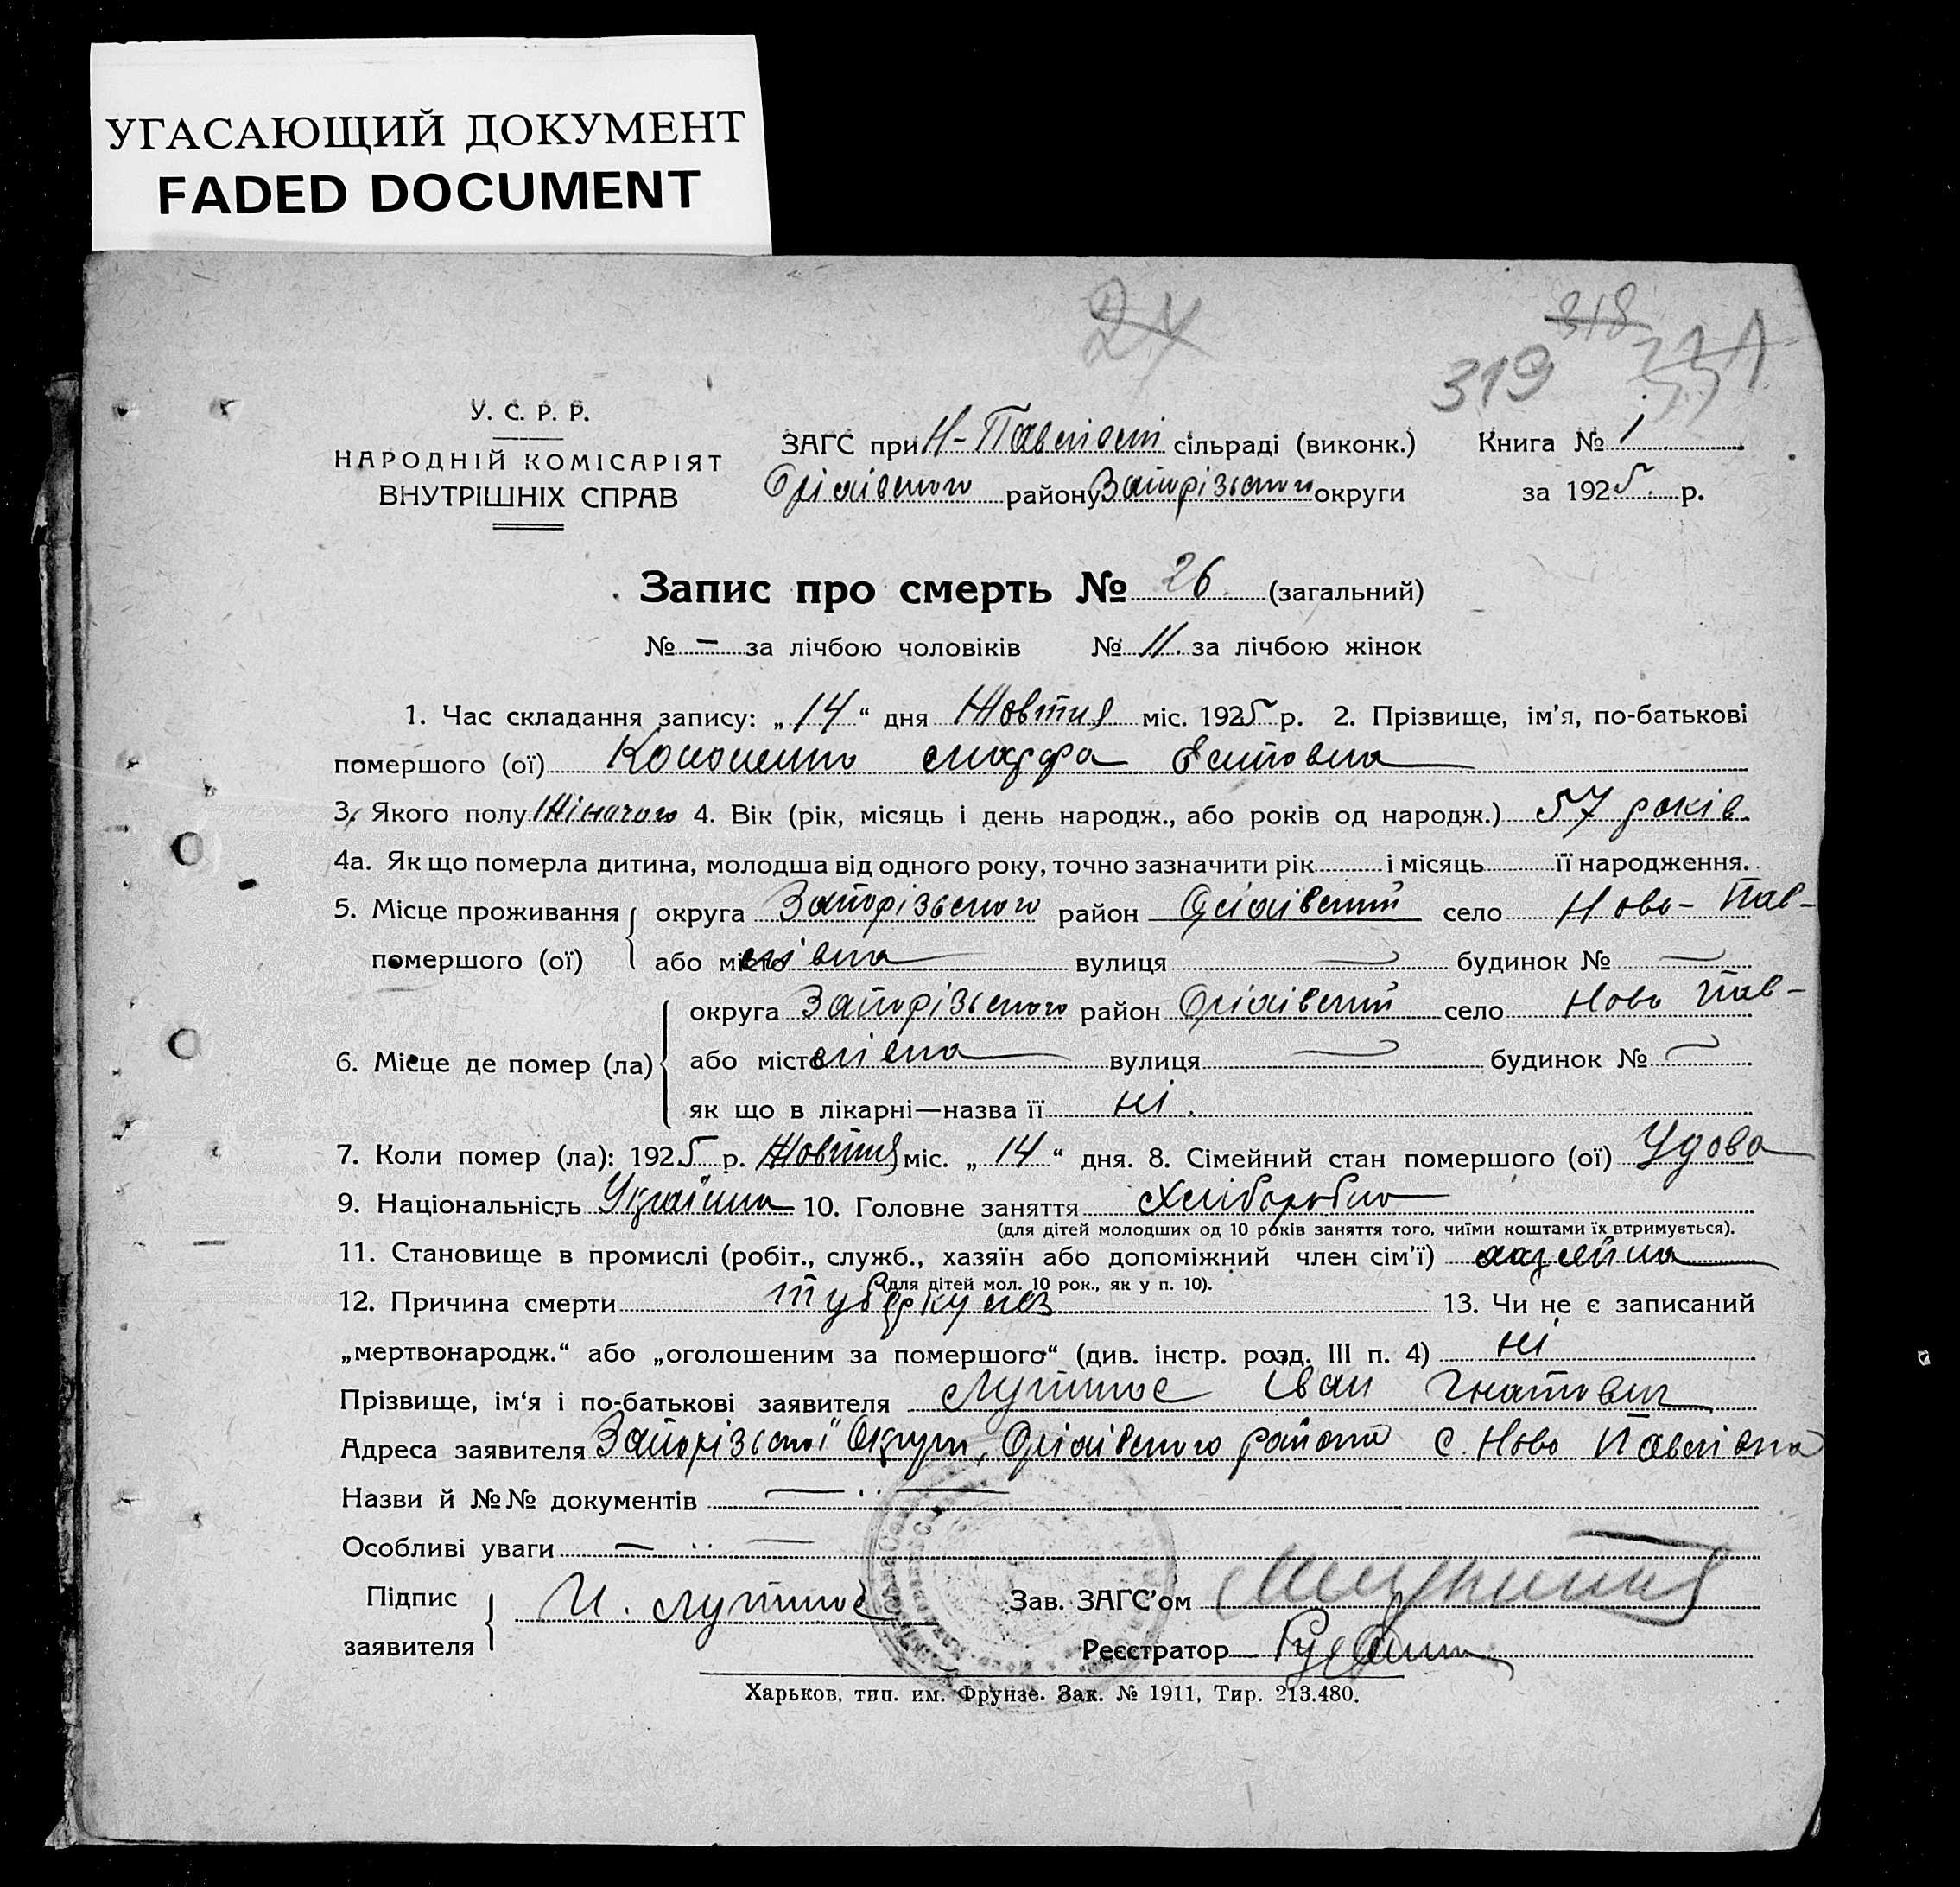 УГАСАЮЩИЙ ДОКУМЕНТ
FADED DOCUMENT
24
318
319
У. С. Р. Р.
НАРОДНІЙ КОМІСАРІЯТ
ВНУТРІШНІХ СПРАВ
ЗАГС при Н-Павлівскі сільраді (виконк.) Книга № 1
Оріхівского району Запорізького округи за 1925 р.
Запис про смерть № 26 (загальний)
№ – за лічбою чоловіків № 11. за лічбою жінок
1. Час складання запису: „ 14 “ дня Жовтня міс. 1925 р. 2. Прізвище, ім’я, по-батькові
помершого (ої) Кононенко Марфа
3. Якого полу Жіночого 4. Вік (рік, місяць і день народж., або років од народж.) 57 років.
4а. Як що померла дитина, молодша від одного року, точно зазначити рік і місяць її народження.
5. Місце проживання округа Запорізьского район Оріхівский село Ново-Пав-
помершого (ої) або місто лівка вулиця — будинок № —
округа Запорізьского район Оріхівский село Ново Пав-
6. Місце де помер (ла) або місто лівка вулиця — будинок № —
як що в лікарні—назва її ні.
7. Коли помер (ла): 1925 р. Жовтня міс. „ 14 “ дня. 8. Сімейний стан помершого (ої) Удова
9. Національність Українка 10. Головне заняття Хліборобка
(для дітей молодших од 10 років заняття того, чиїми коштами їх втримується).
11. Становище в промислі (робіт., служб., хазяїн або допоміжний член сім’ї) хазяйка
(для дітей мол. 10 рок., як у п. 10).
12. Причина смерти туберкульоз 13. Чи не є записаний
„мертвонародж.“ або „оголошеним за помершого“ (див. інстр. розд. III п. 4) ні
Прізвище, ім‘я і по-батькові заявителя Іван Гнатович
Адреса заявителя Запорізької Округи, Оріхівского району с. Ново Павлівка
Назви й №№ документів — .. —
Особливі уваги — .. —
Підпис
заявителя И.
Зав. ЗАГС’ом
Реєстратор
Харьков, тип. им. Фрунзе. Зак. № 1911, Тир. 213.480.